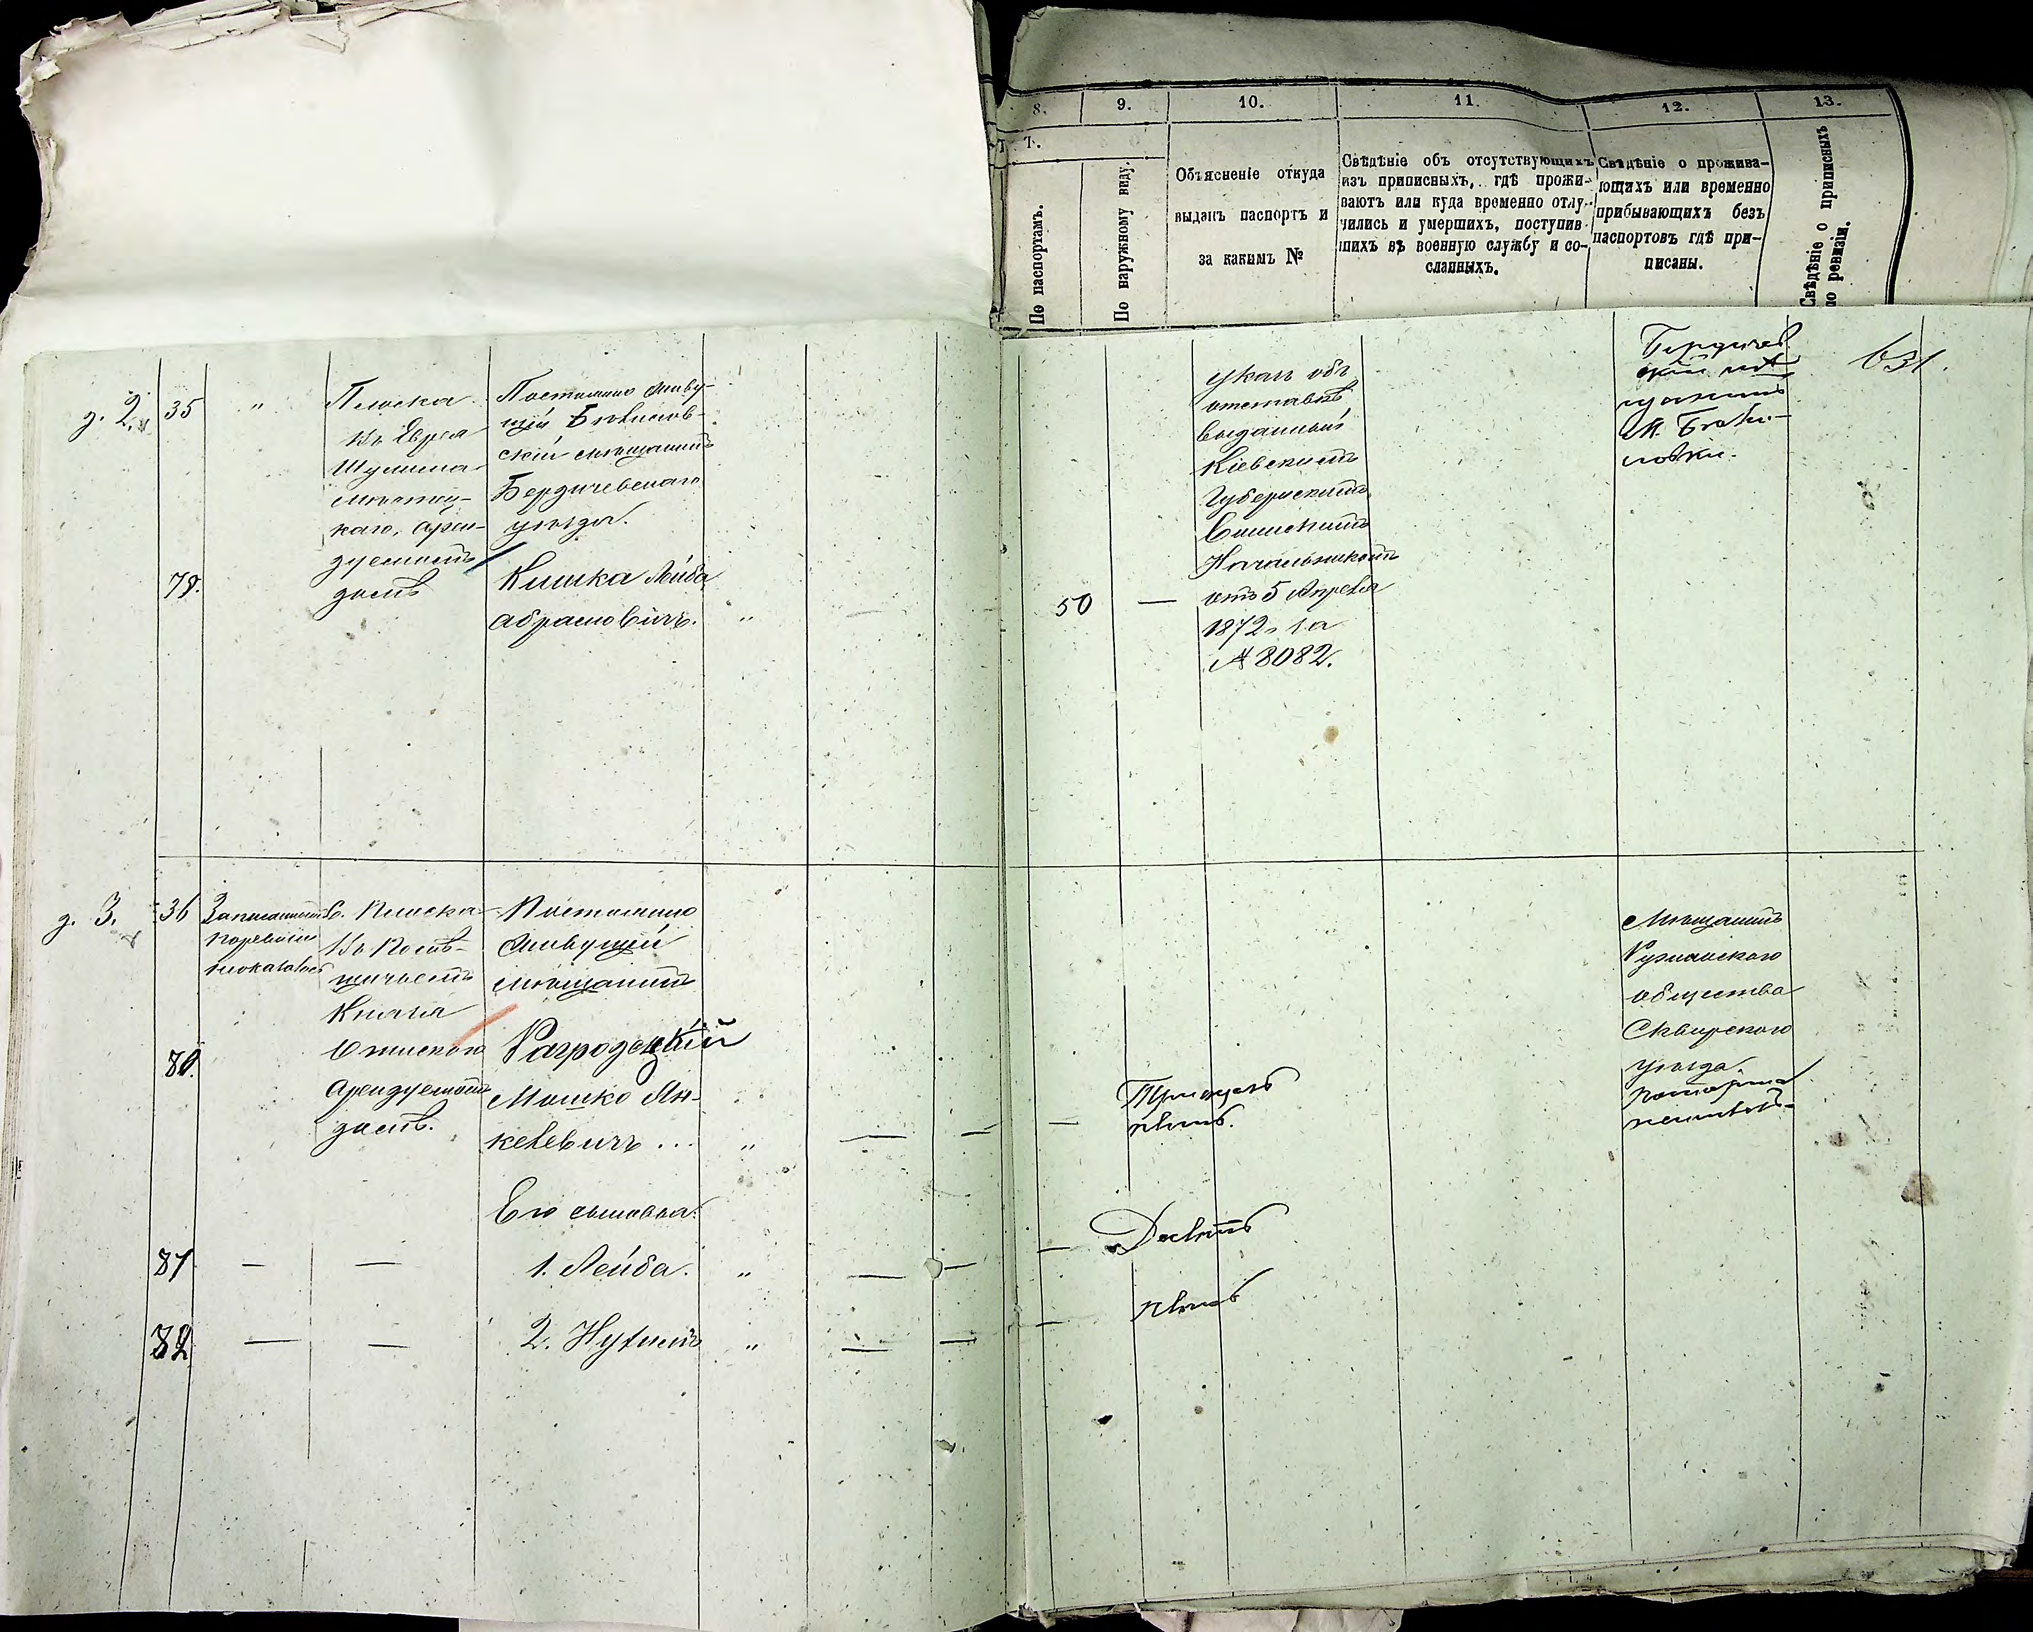 8.
9.
10.
11.
12.
13.
7.
По паспортамъ.
По наружному виду.
Объясненіе откуда
выданъ паспортъ и
за какимъ №
Свѣдѣніе объ отсутствующихъ
изъ приписныхъ, гдѣ прожи-
ваютъ или куда временно отлу-
чились и умершихъ, поступив-
шихъ въ военную службу и со-
сланныхъ.
Свѣдѣніе о прожива-
ющихъ или временно
прибывающихъ безъ
паспортовъ гдѣ при-
писаны.
Свѣдѣніе о приписныхъ
по ревизіи.
д. 2.
35
"
Плиска
въ Еврея
Шулима
арен
дуемомъ
домѣ
Постоянно живу-
щій
скій мѣщанинъ
Бердичевскаго
уѣзда.
79.
Кишка Лейба
Абрамовичъ.
"
50
—
Указъ объ
отставкѣ
выданный
Кіевскимъ
Губернскимъ
Воинскимъ
Начальникомъ
отъ 5 Апреля
1872 г. за
№ 8082.
Бердичев
скій мѣ
щанинъ
М.
631.
д. 3.
36
с. Плиска
въ
Князя
арендуемомъ
домѣ.
Постоянно
живущій
мѣщанинъ
80.
Рагродецкій
Мошко Ян-
келевичъ ...
"
— — —
Тридцать
пять.
Мѣщанинъ
Ружинскаго
общества
Сквирского
уѣзда.
Его сыновья:
81
— —
1. Лейба.
"
— — —
Девять
82
— —
2. Нухимъ
"
— — —
пять